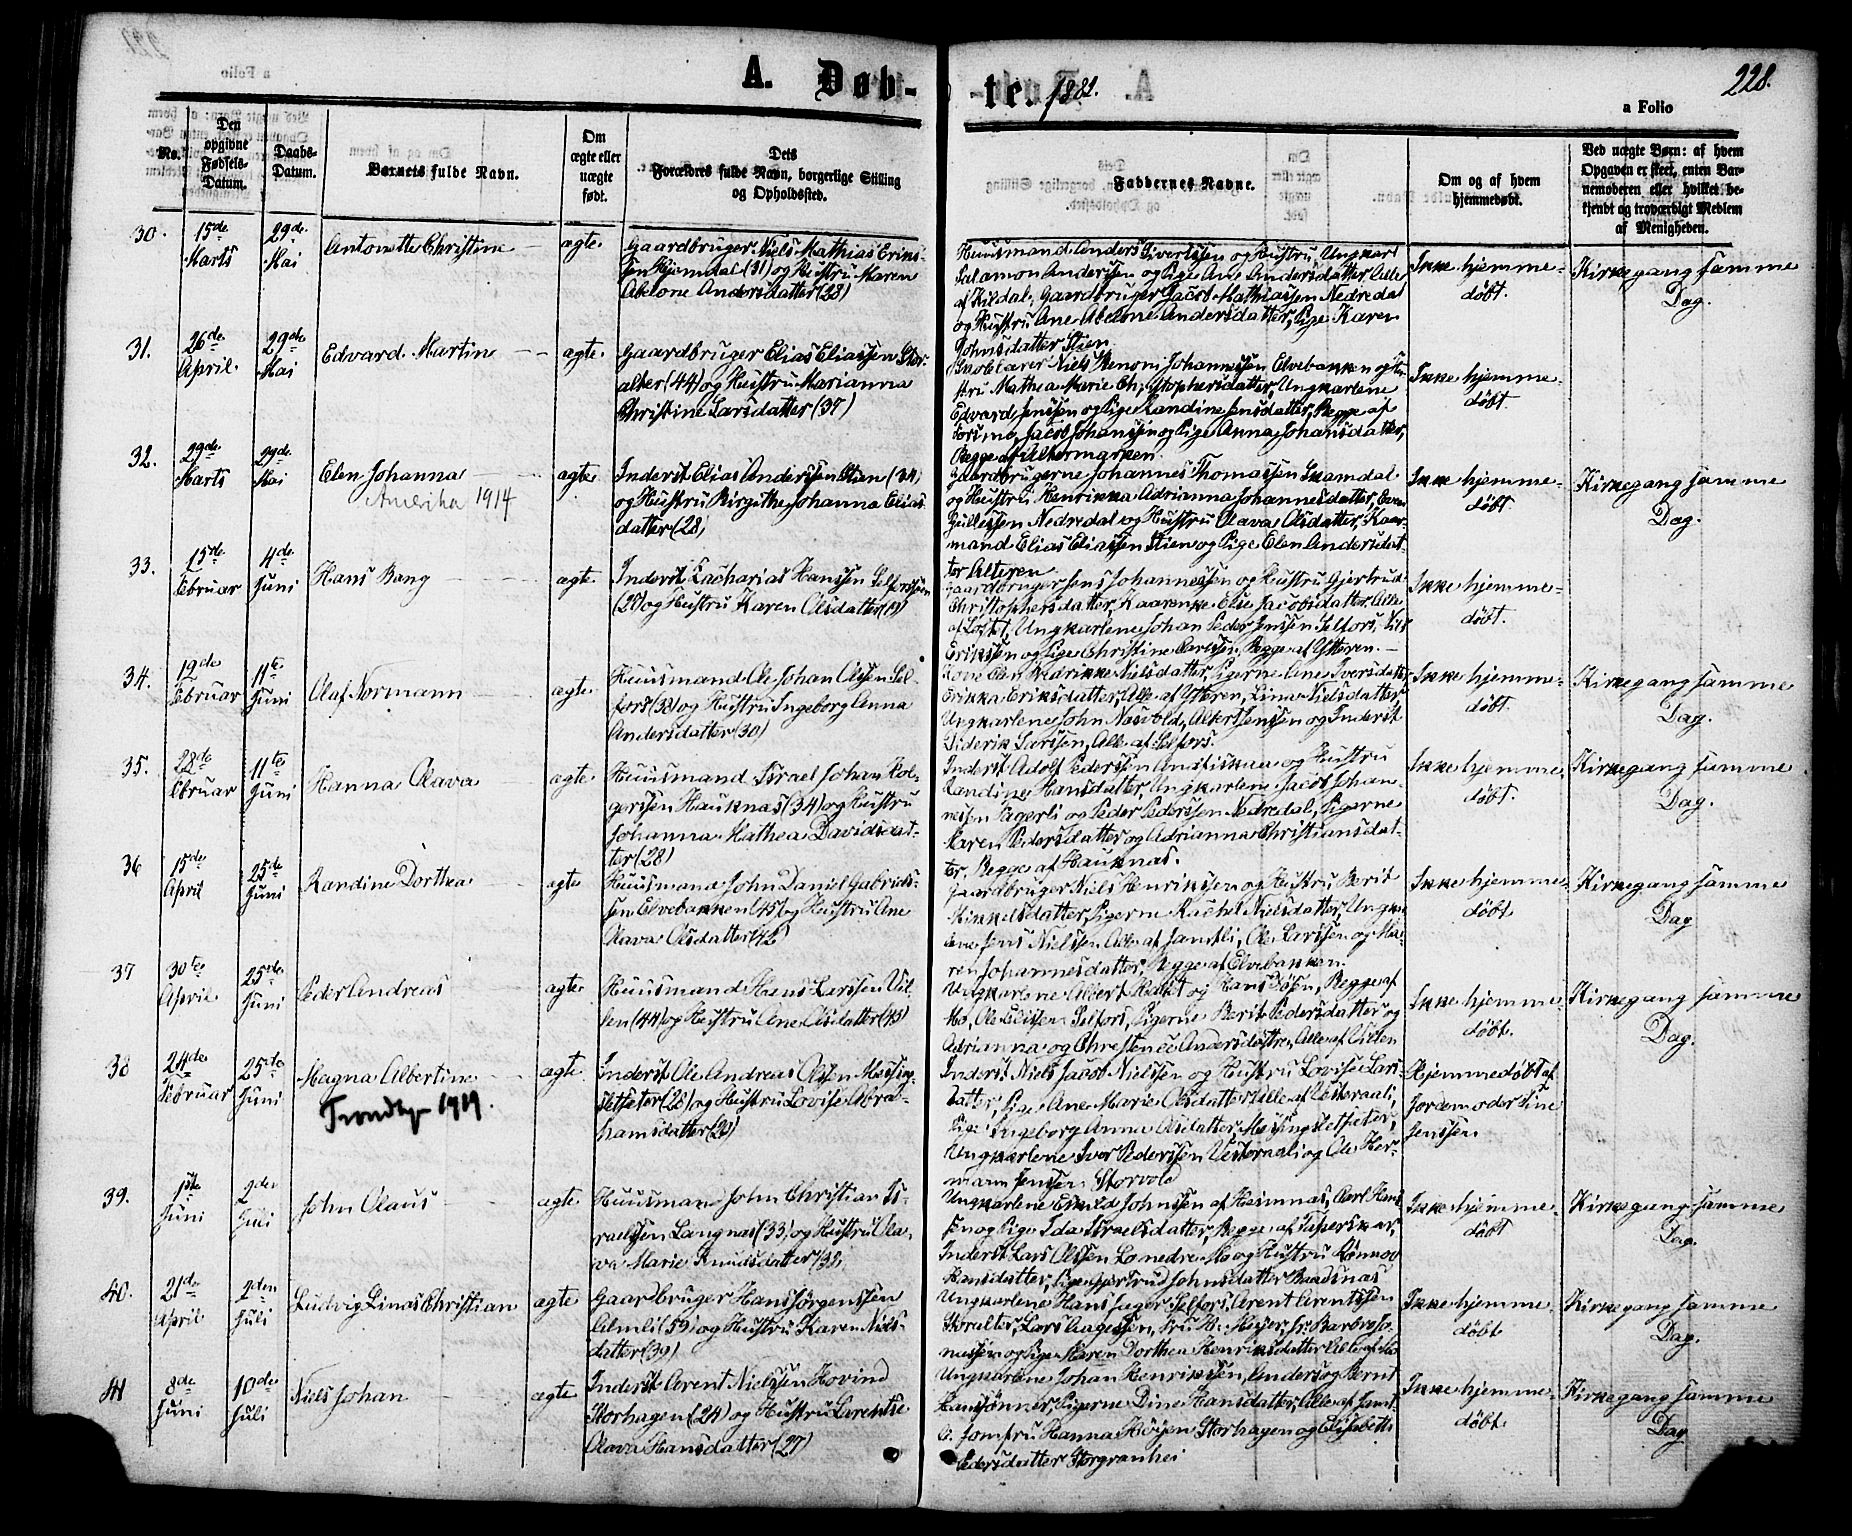 A. Døb- te. 1882. 228.
a Folio
No.
Den opgivne Fødsels-Datum.
Daabs-Datum.
Barnets fulde Navn.
Om ægte eller uægte født.
Dets Forældres fulde Navn, borgerlige Stilling og Opholdssted.
Faddernes Navne.
Om og af hvem hjemmedøbt.
Ved uægte Børn: af hvem Opgaven er skeet, enten Barnemoderen eller hvilket bekjendt og troværdigt Medlem af Menigheden.
30. 15de Marts 29de Mai Antonette Christine ægte
Gaardbruger Niels Mathias Eriks-
sen Hjemdal (31) og Hustru Maren
Abelone Andersdatter (23)
Huusmand Anders Sivertssen og Hustru, Ungkarl
Salamon Anderssen og Pige Ane Andersdatter, Alle
af Kildal, Gaardbruger Jacob Mathiassen Nedredal
og Hustru Ane Abelone Andersdatter, Pige Karen
Johnsdatter Stien
Ikke hjemme-
døbt.
Kirkegang samme
Dag.
31. 26de April. 29de Mai Edvard Martin ægte
Gaardbruger Elias Eliassen Skor-
alter (44) og Hustru Marianna
Christine Larsdatter (37)
Niels Johannessen Elvebakken og Hu-
stru Mathea Marie Christophersdatter, Ungkarlene
Edvard Jenssen og Pige Randine Jensdatter, Begge af
Forsmo, Jacob Johanssen og Pige Anna Johansdatter,
Begge af Altermarken
Ikke hjemme-
døbt.
32. 29de Marts 29de Mai Elen Johanna ægte
Amerika 1914
Inderst Elias Anderssen Stien (34)
og Hustru Birgithe Johanna Elias-
datter (28)
Gaardbrugerne Johannes Thomassen
og Hustru Henrikka Adrianna Johannesdatter,
Nedredal og Hustru Olava Olsdatter, Kaar-
mand Elias Eliassen Stien og Pige Elen Andersdat-
ter Alteren
Ikke hjemme-
døbt.
Kirkegang samme
Dag.
33. 15de Februar 4de Juni Hans Bang ægte
Inderst Zacharias Hanssen Selforslien
(27) og Hustru Karen Olsdatter (19)
Gaardbruger Jens Johannessen og Hustru Gjertrud
Christophersdatter, Kaarenke Else Jacobsdatter, Alle
Ungkarlene Johan Peder Jenssen Selfors, Nils
Erikssen og Pige Christine Carlssen, Begge af Ytteren.
Ikke hjemme-
døbt.
34. 19de Februar 11te Juni Olaf Normann ægte
Huusmand Ole Johan Olssen Sel-
fors (38) og Hustru Ingeborg Anna
Andersdatter (30)
Kone Elen Marikke Nielsdatter, Pigerne Ane Iversdatter,
Erikka Eriksdatter, Alle af Ytteren, Lina Nielsdatter,
Ungkarlene John Næsvold, Albert Jenssen og Inderst
Diderik Larssen, Alle af Selfors.
Ikke hjemme-
døbt.
Kirkegang samme
Dag.
35. 28de Februar 11te Juni Hanna Olava ægte
Huusmand Israel Johan Hol-
gerssen Hauknæs (34) og Hustru
Johanna Mathea Davidsdat-
ter (28)
Inderst Adolf Pederssen og Hustru
Randine Hansdatter, Ungkarlene Jacob Johan-
nessen Fagerli og Peder Pederssen Nedredal, Pigerne
Karen Pedersdatter og Adrianna Christiansdat-
ter, Begge af Hauknæs.
Ikke hjemme-
døbt.
Kirkegang samme
Dag.
36 15de April 25de Juni Randine Dorthea ægte
Huusmand John Daniel Gabriels-
sen Elvebakken (45) og Hustru Ane
Olava Olsdatter (42)
Gaardbruger Niels Henrikssen og Hustru Berit
Mikkelsdatter, Pigerne Rachel Nielsdatter, Ungkar-
lene Jens Nielssen Alle af Jamtli, Ole Larssen og Ma-
ren Johannesdatter, Begge af Elvebakken.
Ikke hjemme-
døbt
Kirkegang samme
Dag
37 30te April 25de Juni Peder Andreas ægte
Huusmand Hans Larssen Vil-
len (44) og Hustru Ane Olsdatter (45)
Ungkarlene Albert og Hans Begge af
Mo, Ole Selfors, Pigerne Berit Pedersdatter og
Adrianna og Christence Andersdøttre, Alle af Villen
Ikke hjemme-
døbt.
Kirkegang samme
Dag.
38 24de Februar 25de Juni Magna Albertine ægte
Trondhj. 1919.
Inderst Ole Andreas Olssen Messing-
sletfeter (28) og Hustru Lovise Abra-
hamsdatter (29)
Inderst Niels Jacob Nielssen og Hustru Lovise Lars-
datter, Pige Ane Marie Olsdatter Alle af Vesteraali,
Pige Ingeborg Anna Olsdatter, Messingsletfeter,
Ungkarlene Iver Pederssen Vesteraali og Ole Her-
mann Jenssen Storvold
Hjemmedøbt af
Jordemoder Sine
Jenssen.
39. 1ste Juni 2den Juli John Olaus ægte
Huusmand John Christian Is-
raelssen Langnæs (33) og Hustru Ola-
va Marie Knudsdatter (32)
Ungkarlene Johnssen af Heimnæs, Carl Hans-
sen og Pige Ida Israelsdatter, Begge af
Inderst Lars Olssen Lo nedre Mo og Hustru Rønnov
Hansdatter, Pige Gjertrud Johnsdatter Baadsnæs
Ikke hjemme-
døbt
Kirkegang samme
Dag.
40. 21de April 2den Juli Ludvig Linas Christian ægte
Gaardbruger Hans Jørgenssen
Almli (59) og Hustru Karen Niels-
datter (39)
Ungkarlene Hans Jager Selfors, Arent Arentssen
Skoralter, Lars Aagessen, Fru M. Meyer, Fr. Barbro Jo-
nessen og Pige Maren Dorthea Henriksdatter Alle af Mo
Ikke hjemme-
døbt
Kirkegang samme
Dag.
41 8de Juni 10de Juli Niels Johan ægte
Inderst Arent Nielssen Hovind
Storhagen (24) og Hustru Larentse
Olava Hansdatter (27)
Ungkarlene Johan Henrikssen, Anders og Bernt
Hanssønner, Pigerne Dine Hansdatter, Alle af Jamt-
li, Jomfru Hanna Høijen Storhagen og Elisabeth
Pedersdatter Storgranhei
Ikke hjemme-
døbt
Kirkegang samme
Dag